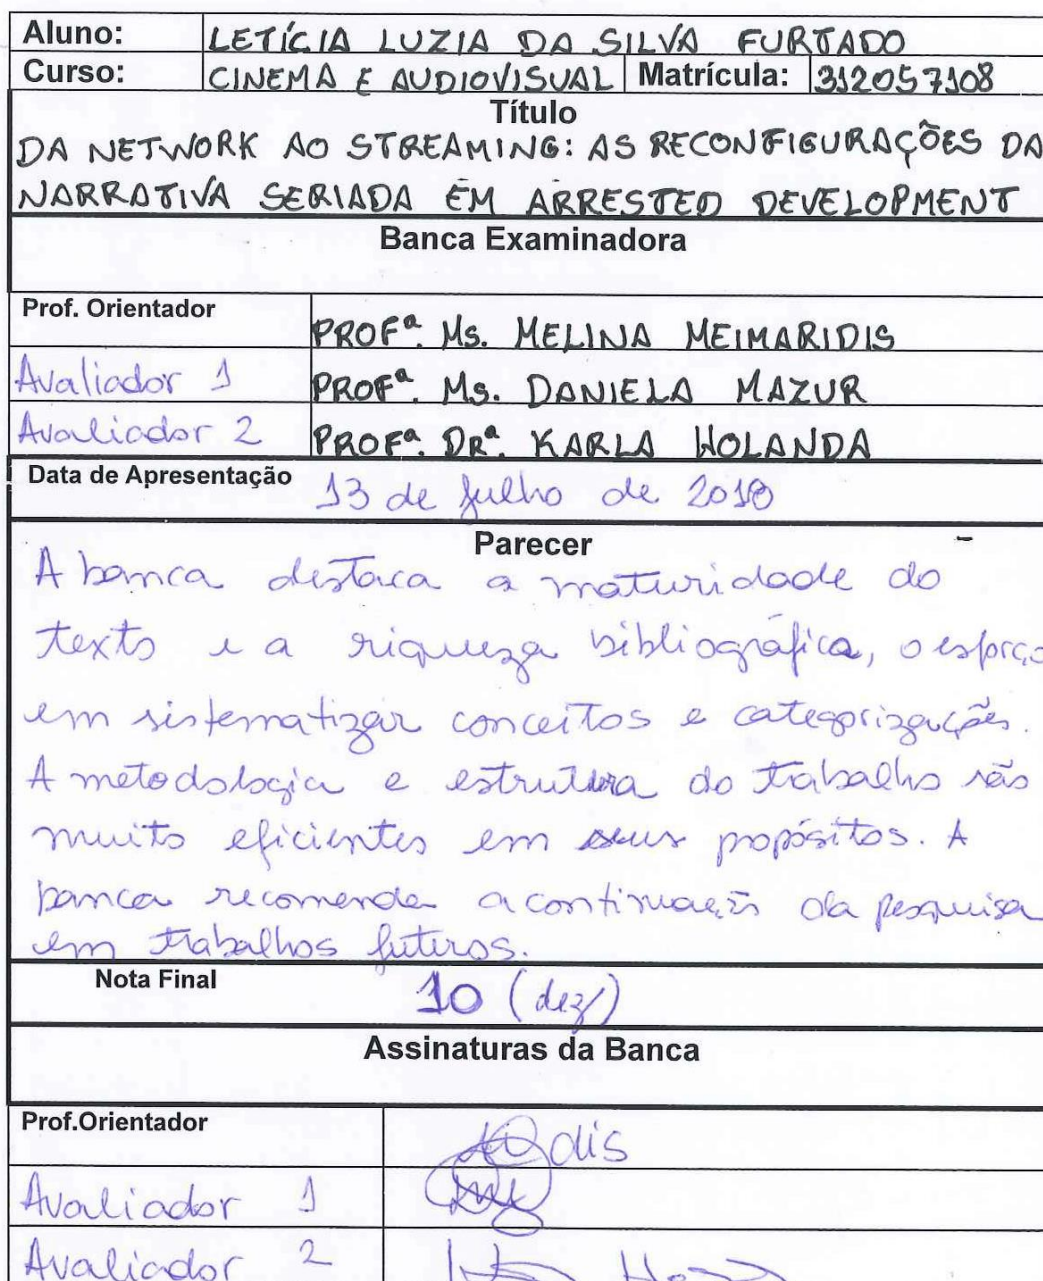 Aluno: LETÍCIA LUZIA DA SILVA FURTADO
Curso: CINEMA E AUDIOVISUAL Matrícula: 312057108
Título
DA NETWORK AO STREAMING: AS RECONFIGURAÇÕES DA
NARRATIVA SERIADA EM ARRESTED DEVELOPMENT
Banca Examinadora
Prof. Orientador PROFª. Ms. MELINA MEIMARIDIS
Avaliador 1 PROFª. Ms. DANIELA MAZUR
Avaliador 2 PROFª. DRª. KARLA HOLANDA
Data de Apresentação 13 de Julho de 2018
Parecer
A banca destaca a maturidade do
texto e a riqueza bibliográfica, o esforço
em sistematizar conceitos e categorizações.
A metodologia e estrutura do trabalho são
muito eficientes em seus propósitos. A
banca recomenda a continuação da pesquisa
em trabalhos futuros.
Nota Final 10 (dez)
Assinaturas da Banca
Prof.Orientador
Avaliador 1
Avaliador 2